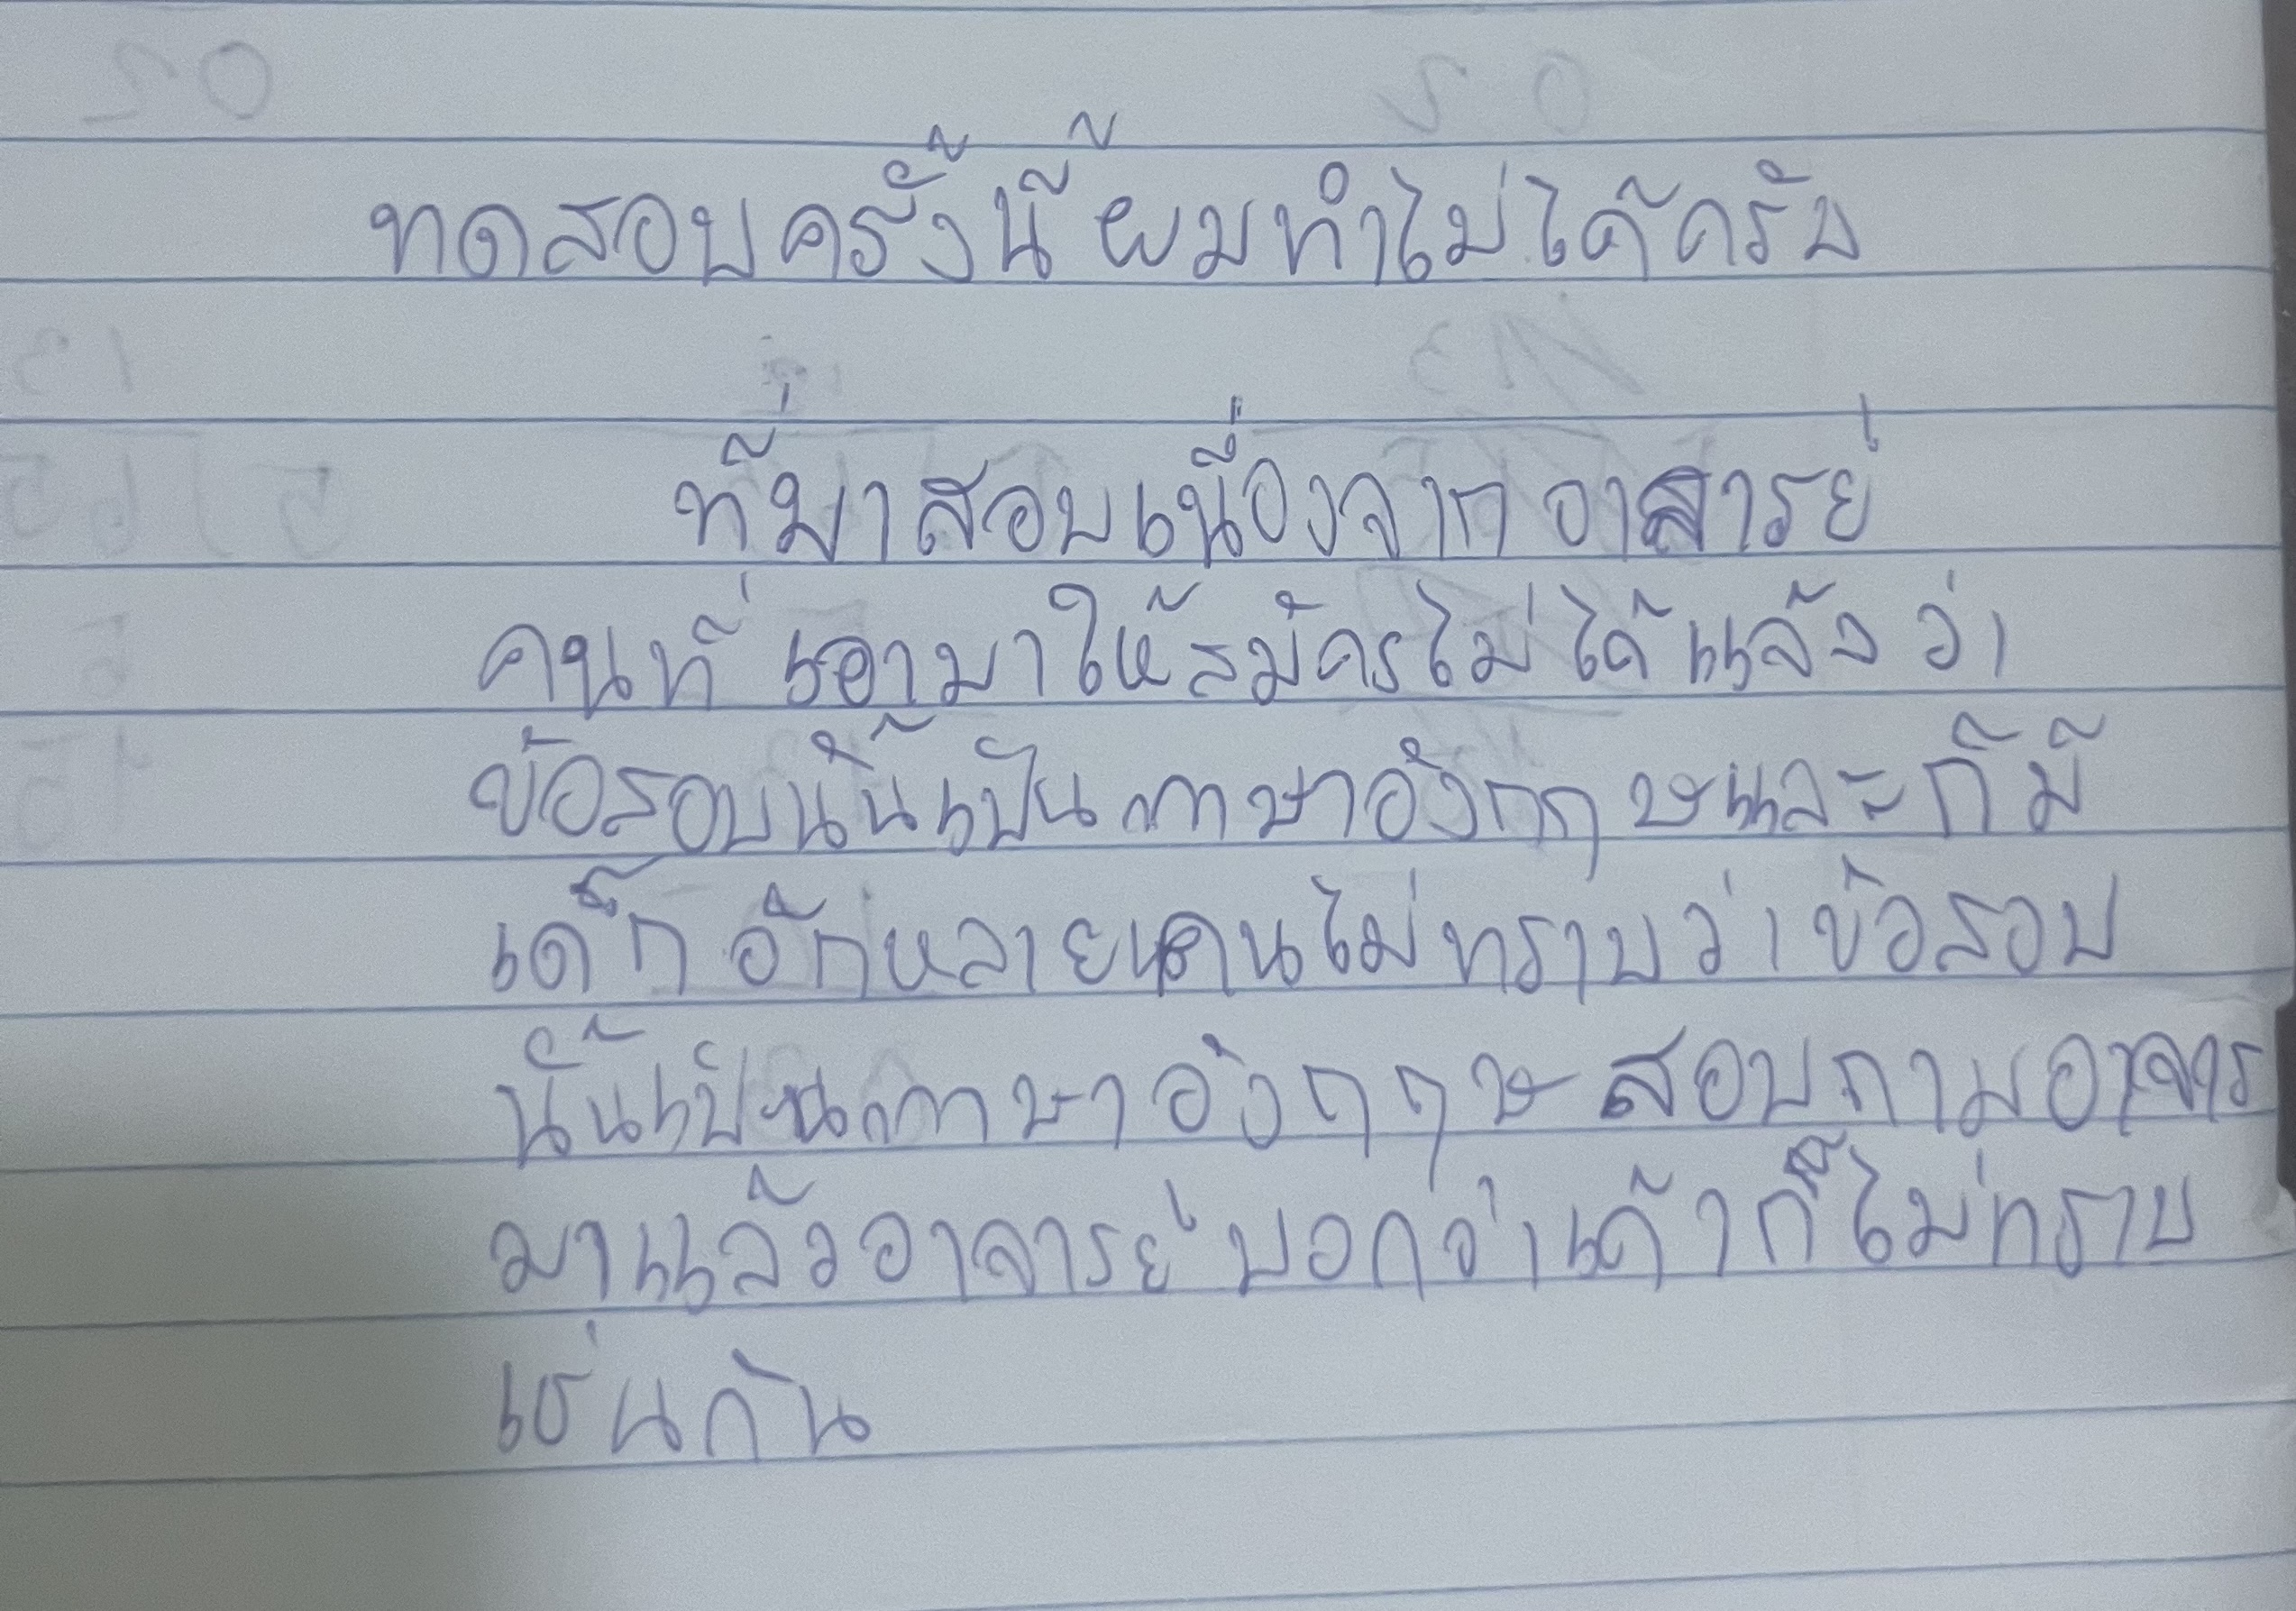 ทดสอบครั้งนี้ ผมทำไม่ได้ครับ
ที่มาสอบเนื่องจาก อาสารย์
คนที่ เอามาให้สมัครไม่ได้แจ้งว่า
ข้อสอบนั้นเป็นภาษาอังกฤษและก็มี
เด็กอีกหลายคนไม่ทราบว่าข้อสอบ
นั้นเป็นภาษาอังกฤษ สอบถามอาจาร
มาแล้วอาจารย์บอกว่าเค้าก็ไม่ทราบ
เช่นกัน